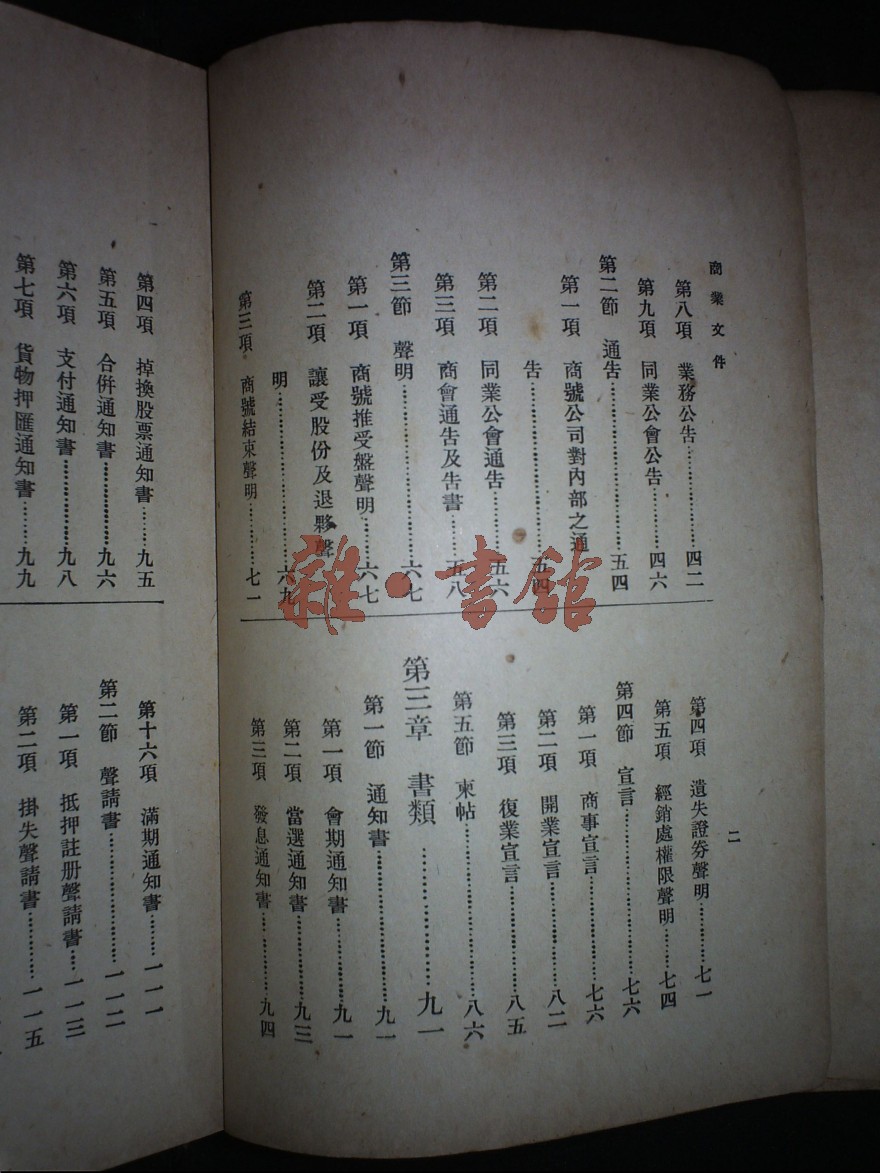 商業文件
第八項　業務公告…………四二
第九項　同業公會公告…………四六
第二節　通告…………五四
第一項　商號公司對內部之通
告…………五四
第二項　同業公會通告…………五六
第三項　商會通告及告書…………五八
第三節　聲明…………六七
第一項　商號推受盤聲明…………六七
第二項　讓受股份及退夥聲
明…………六九
第三項　商號結束聲明…………七一
二
第四項　遺失證券聲明…………七一
第五項　經銷處權限聲明…………七四
第四節　宣言…………七六
第一項　商事宣言…………七六
第二項　開業宣言…………八二
第三項　復業宣言…………八五
第五節　柬帖…………八六
第三章　書類…………九一
第一節　通知書…………九一
第一項　會期通知書…………九一
第二項　當選通知書…………九三
第三項　發息通知書…………九四
第四項　掉換股票通知書…………九五
第五項　合併通知書…………九六
第六項　支付通知書…………九八
第七項　貨物押匯通知書…………九九
第十六項　滿期通知書…………一一一
第二節　聲請書…………一一二
第一項　抵押註册聲請書…………一一三
第二項　掛失聲請書…………一一五
雜·書館